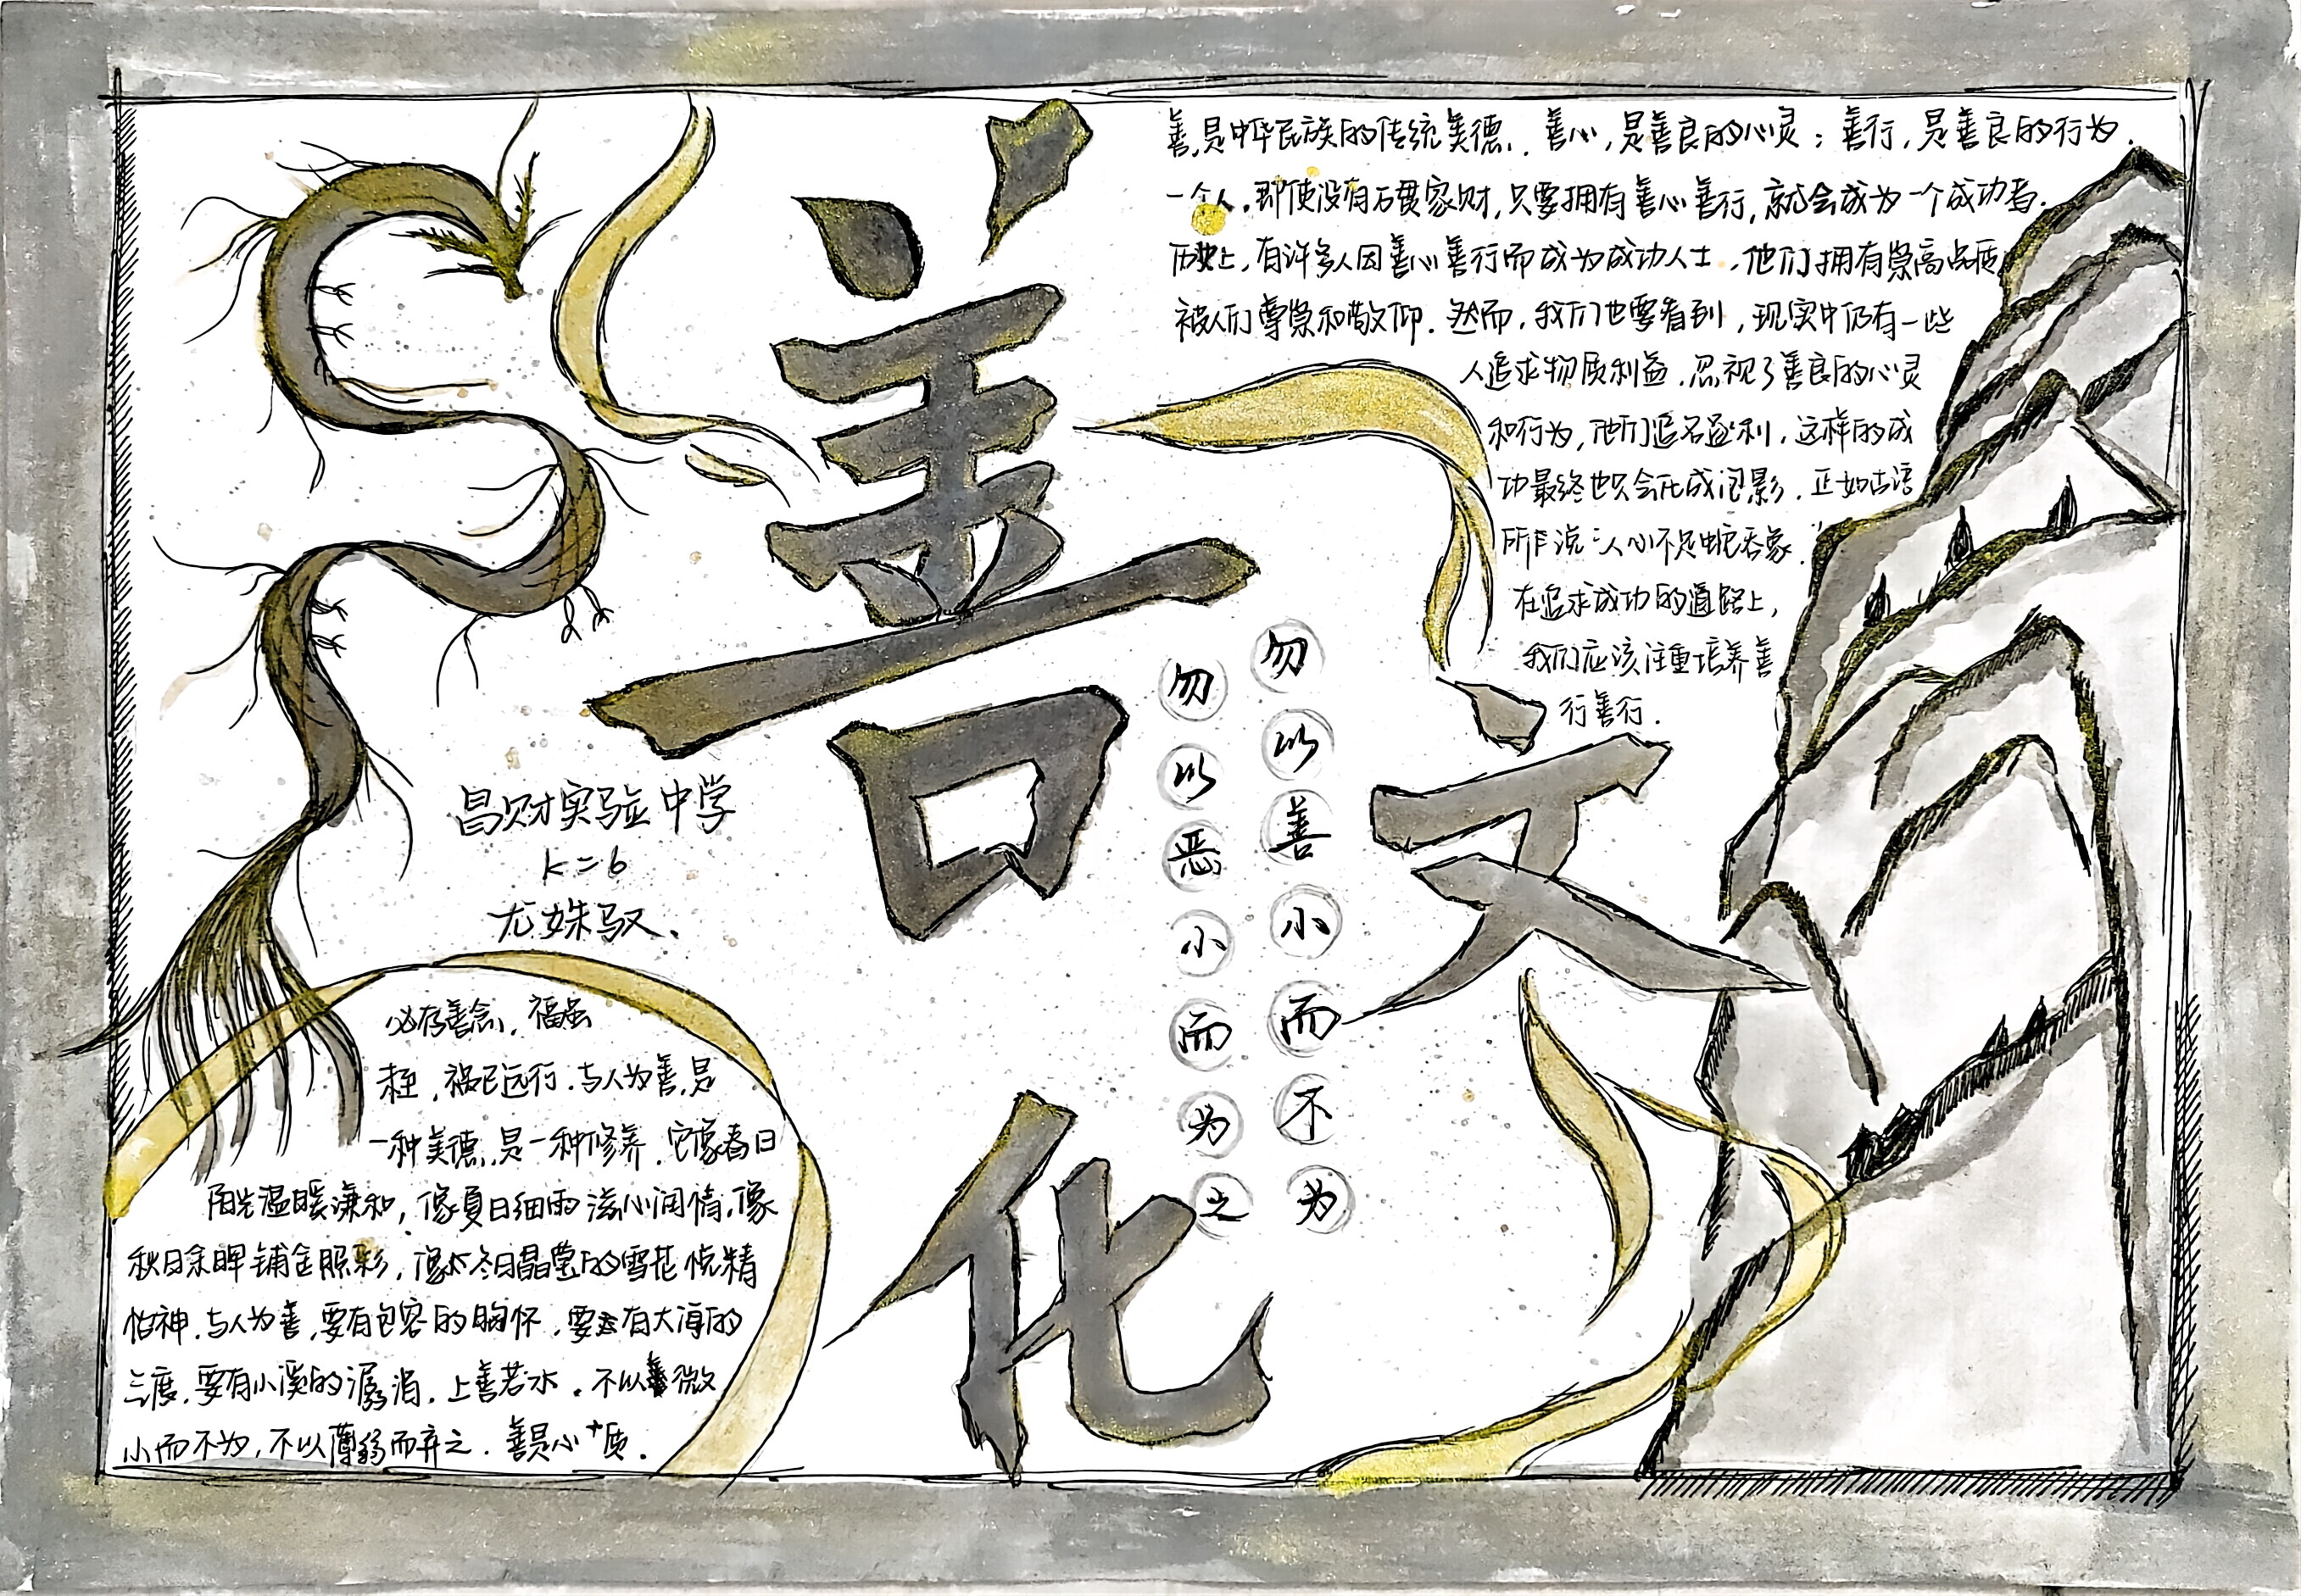 善文化
善,是中华民族的传统美德.善心,是善良的心灵;善行,是善良的行为.
一个人,即使没有万贯家财,只要拥有善心善行,就会成为一个成功者.
历史上,有许多人因善心善行而成为成功人士,他们拥有崇高品质
被人们尊崇和敬仰.然而,我们也要看到,现实中仍有一些
人追求物质利益,忽视了善良的心灵
和行为,他们追名逐利,这样的成
功最终也只会化成泡影.正如古语
所说:人心不足蛇吞象.
在追求成功的道路上,
我们应该注重培养善
行善行.
勿以善小而不为
勿以恶小而为之
昌财实验中学
尤姝驭.
必存善念,福虽
未至,祸已远行.与人为善,是
一种美德,是一种修养.它像春日
阳光温暖谦和,像夏日细雨滋心润情,像
秋日余晖铺金照彩,像冬日晶莹的雪花悦精
怡神.与人为善,要有包容的胸怀,要有大海的
度,要有小溪的潺涓.上善若水.不以善微
小而不为,不以薄弱而弃之.善是心质.